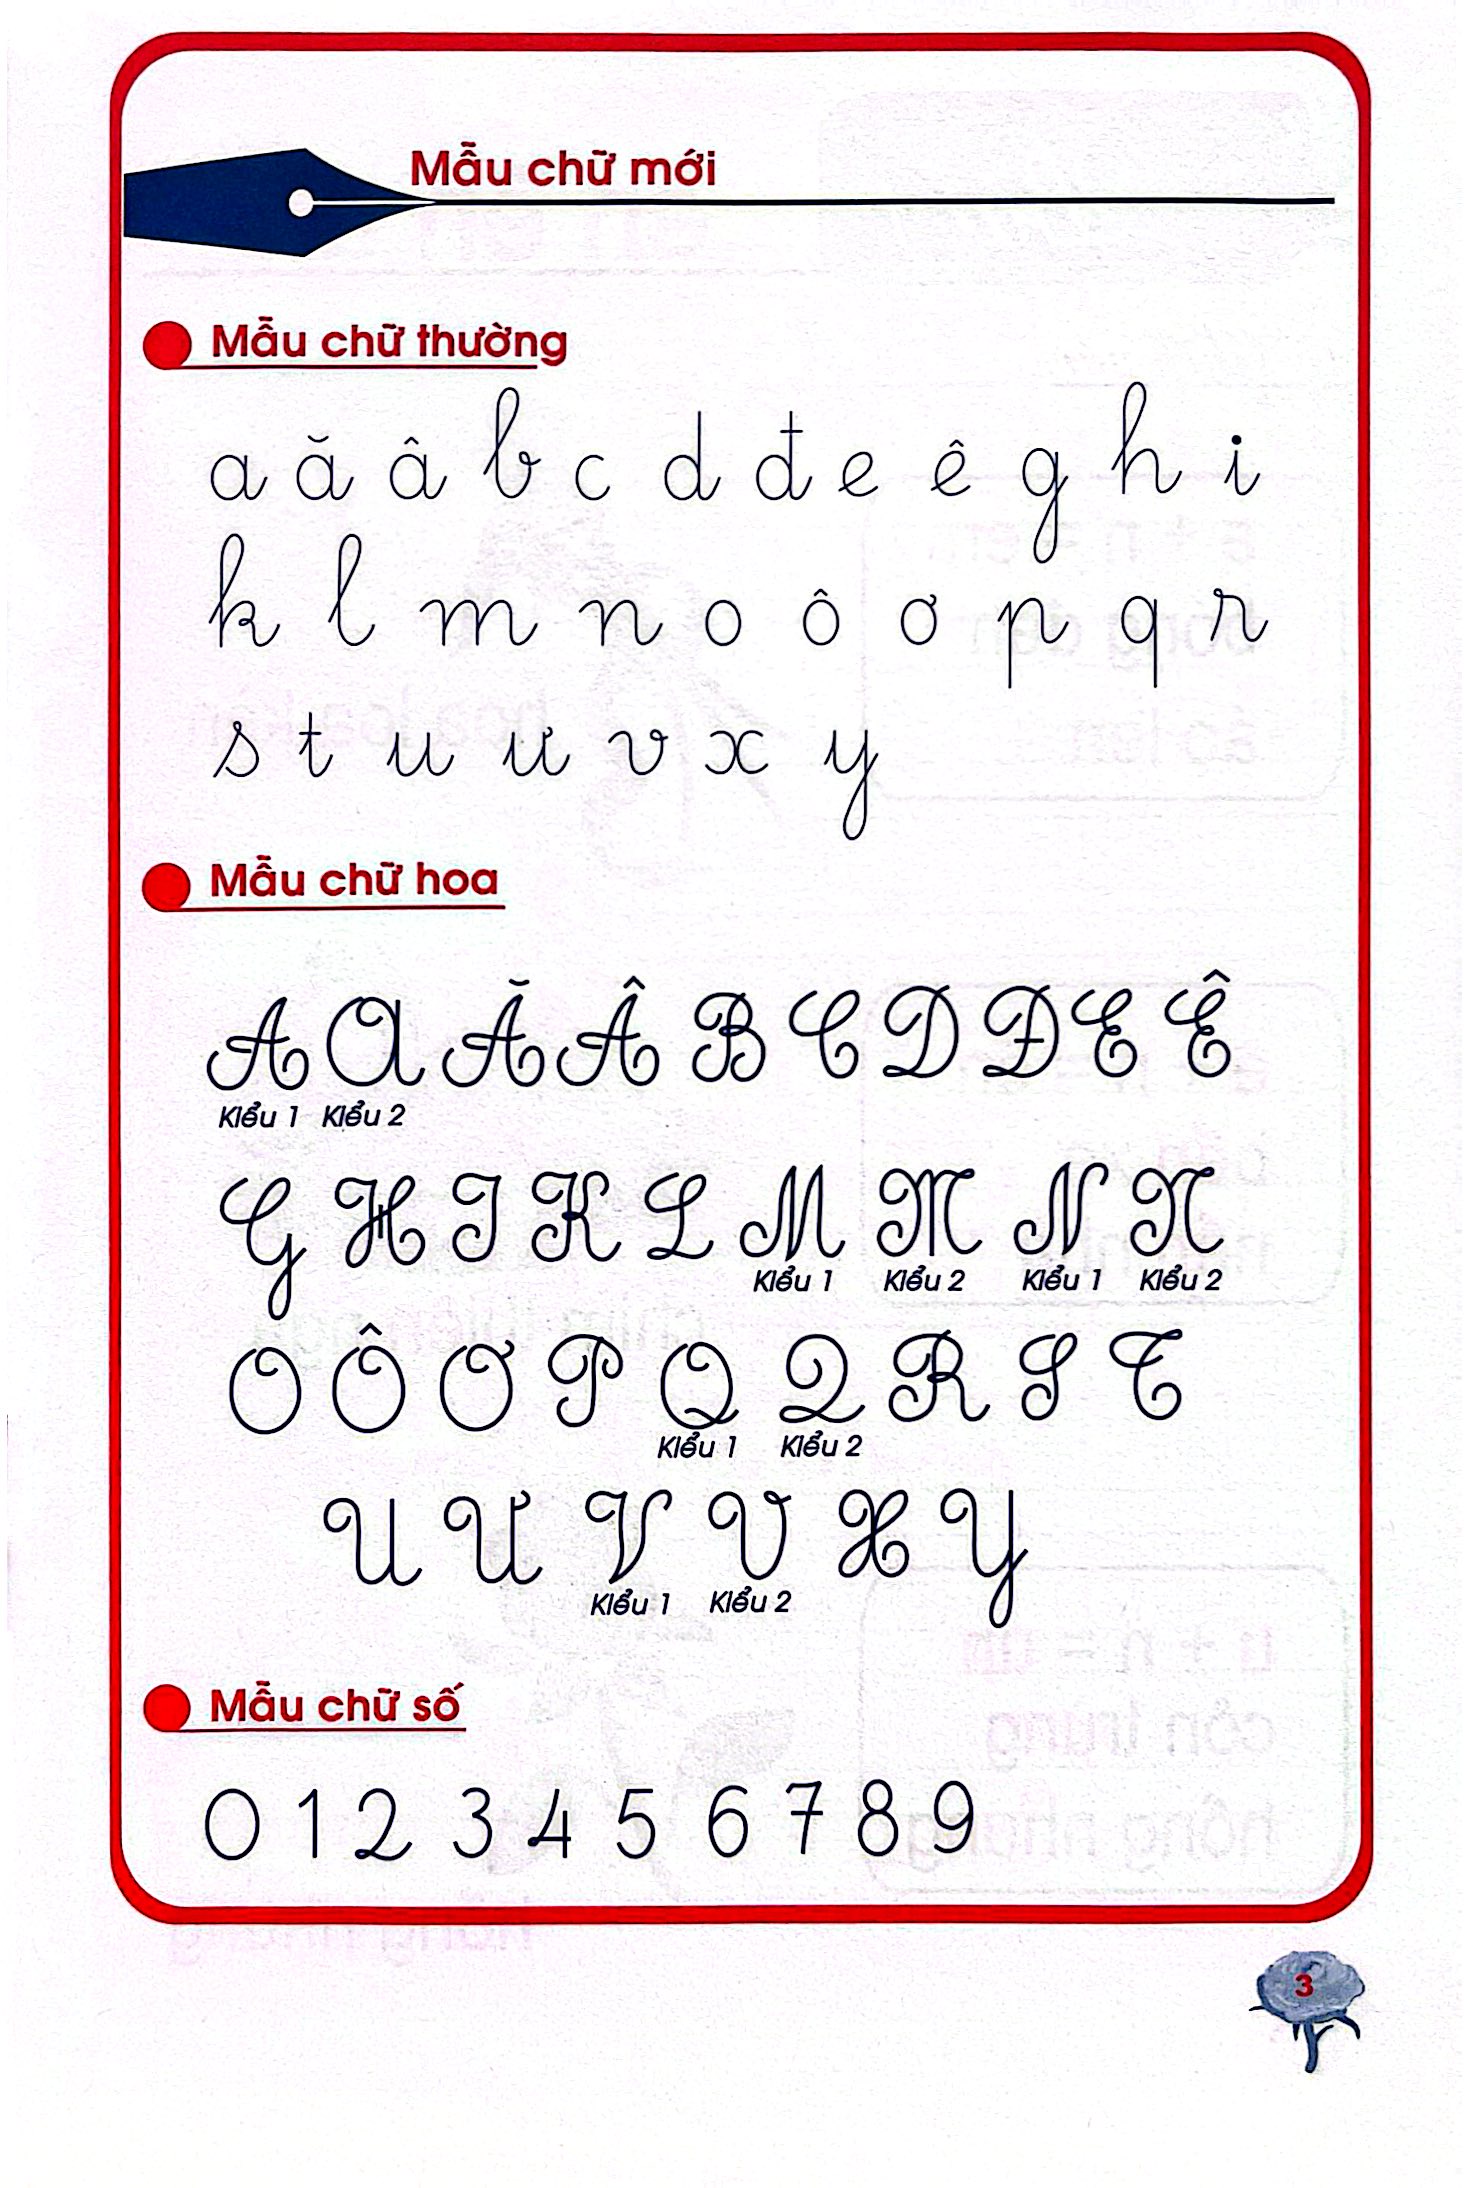 Mẫu chữ mới
Mẫu chữ thường
a ă â b c d đ e ê g h i
k l m n o ô ơ p q r
s t u ư v x y
Mẫu chữ hoa
A A Ă Â B C D Đ E Ê
Kiểu 1 Kiểu 2
G H I K L M M N N
Kiểu 1 Kiểu 2 Kiểu 1 Kiểu 2
O Ô Ơ P Q Q R S T
Kiểu 1 Kiểu 2
U Ư V V X Y
Kiểu 1 Kiểu 2
Mẫu chữ số
0 1 2 3 4 5 6 7 8 9
3